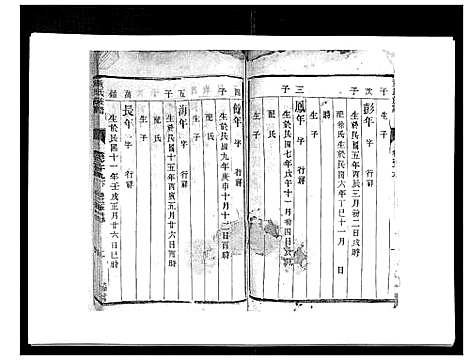 次 子
彭年 字 行
生於民國五年丙辰三月初二日戌時
配徐氏生於民國六年丁巳十一月 日
時
生 子
三 子
鳳年 字 行
生於民國七年戊午十一月初四日
配 氏
生 子
四 子
年 字 行
生於民國九年庚申十月十二日酉時
配 氏
生 子
五 子
海年 字 行
生於民國十五年丙寅五月廿八日酉時
配 氏
生 子
長年 字 行
生於民國十一年壬戌正月廿六日巳時